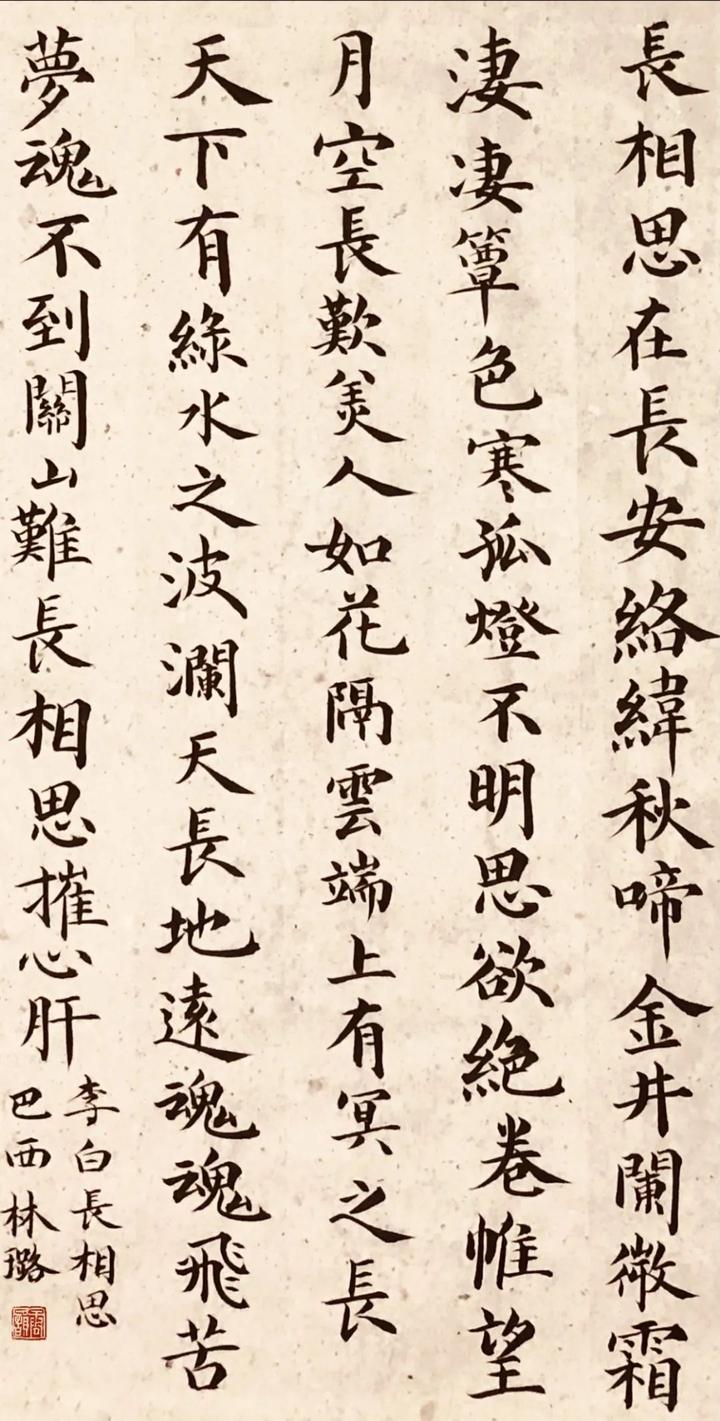 長相思在長安絡緯秋啼金井闌微霜
淒凄簟色寒孤燈不明思欲絕卷帷望
月空長歎美人如花隔雲端上有冥之長
天下有綠水之波瀾天長地遠魂魂飛苦
夢魂不到關山難長相思摧心肝
李白長相思
巴西林璐